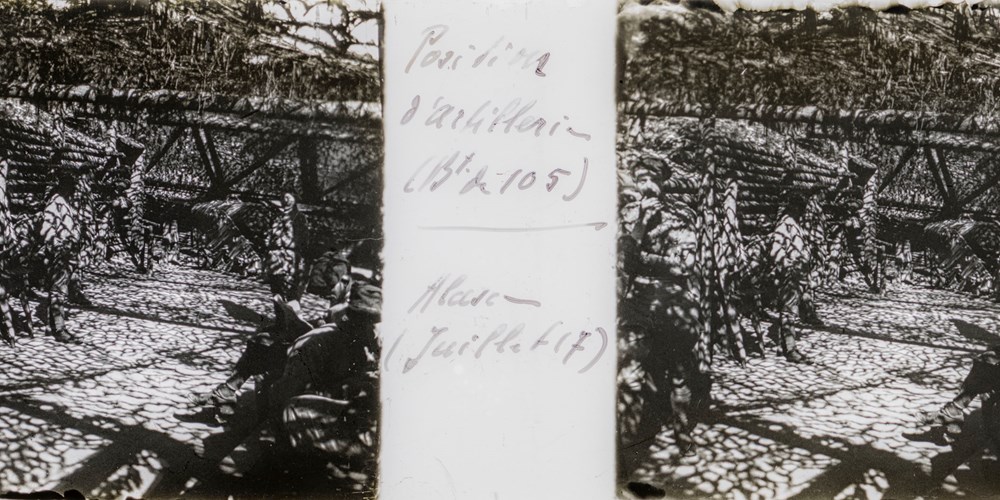 Position
d'artillerie
(Bt de 105)
Alsace
(Juillet 17)